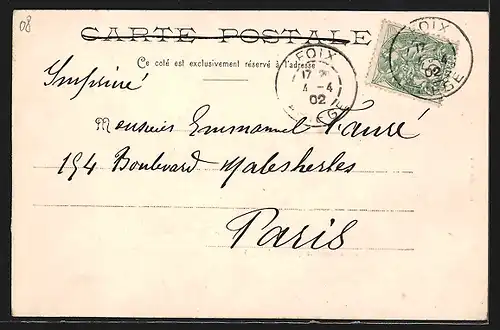 08
CARTE POSTALE
Ce côté est exclusivement réservé à l'adresse
FOIX
17
4 - 4
02
FOIX
17
4
02
Imprimé
Monsieur Emmanuel Fauré
194 Boulevard Malesherbes
Paris